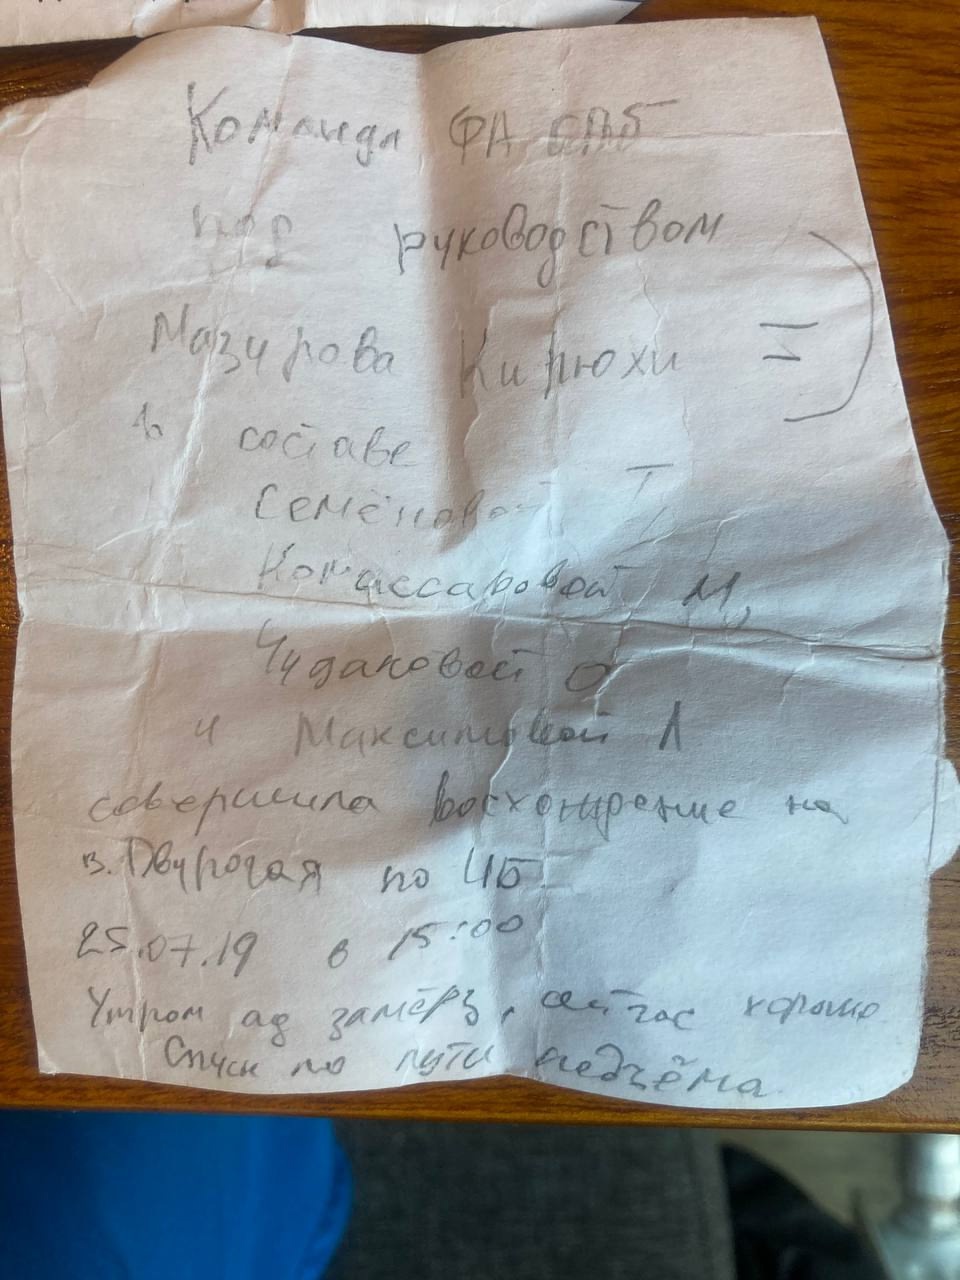 Команда ФА СПб
под руководством
Мазурова Кирюхи = )
в составе
Семёновой Т,
Комассаровой М,
Чудаковой О
и Максимовой Л
совершила восхождение на
в. Двурогая по 1Б
25.07.19 в 15:00
Утром ад замёрз, сейчас хорошо
Спуск по пути подъёма.